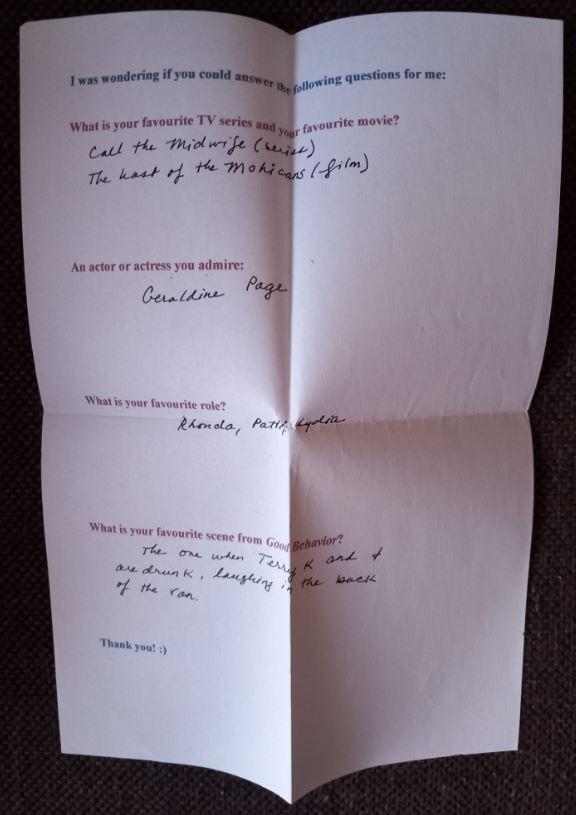 I was wondering if you could answer the following questions for me:
What is your favourite TV series and your favourite movie?
Call the Midwife (series)
The Last of the Mohicans (film)
An actor or actress you admire:
Geraldine Page
What is your favourite role?
Rhonda, Patty, Lydia
What is your favourite scene from Good Behavior?
The one when Terry K and I
are drunk, laughing in the back
of the van.
Thank you! :)